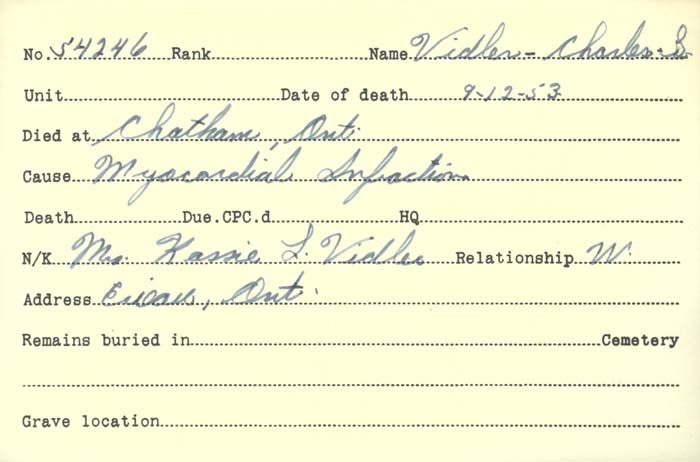 No. 54246 Rank Name Vidler - Charles - S.
Unit Date of death 9-12-53
Died at Chatham, Ont.
Cause Myocardial Infraction
Death Due.CPC.d HQ
N/K Mrs. Kassie L. Vidler Relationship W.
Address Ont.
Remains buried in Cemetery
Grave location